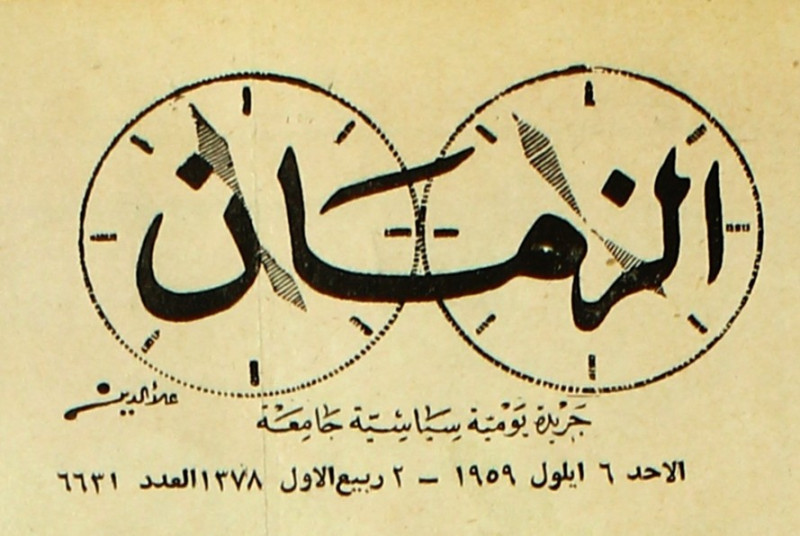 الزمان
علاء الدين
جريدة يومية سياسية جامعة
الاحد ٦ ايلول ١٩٥٩ – ٢ ربيع الاول ١٣٧٨ العدد ٦٦٣١